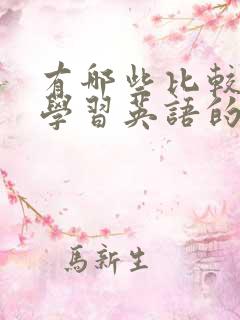 有哪些比較
學習英語的
馬新生